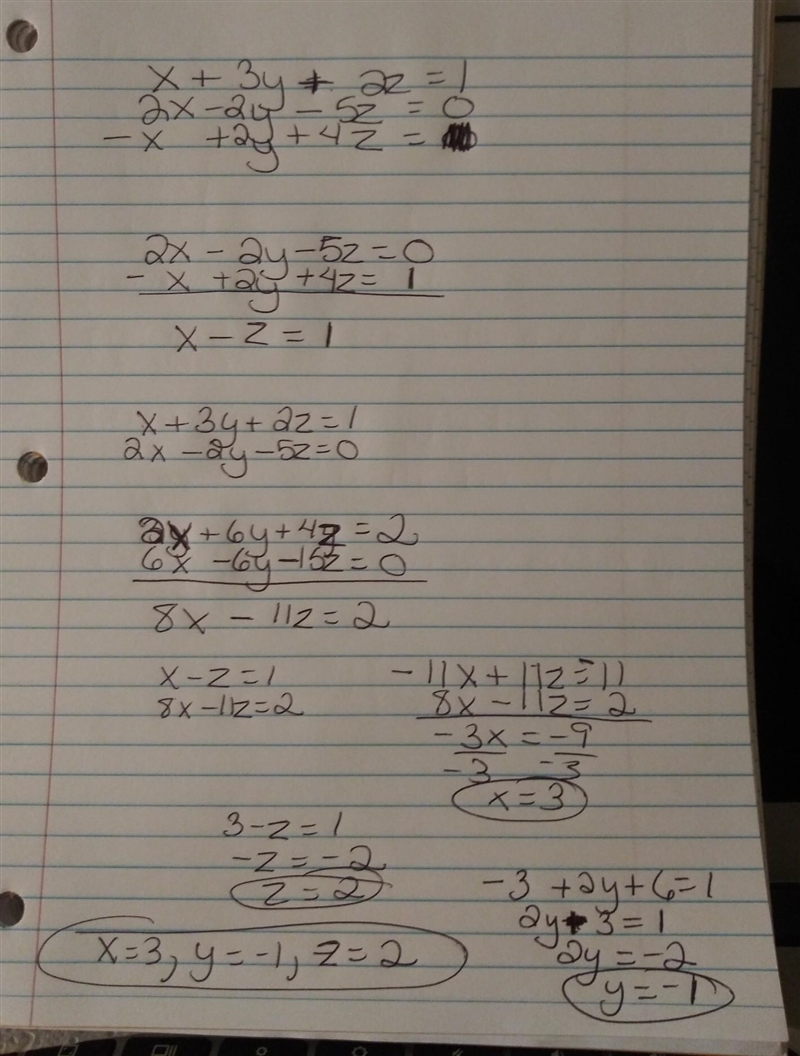 x + 3y + 2z = 1
2x - 2y - 5z = 0
-x + 2y + 4z =
2x - 2y - 5z = 0
- x + 2y + 4z = 1
x - z = 1
x + 3y + 2z = 1
2x - 2y - 5z = 0
2x + 6y + 4z = 2
6x - 6y - 15z = 0
8x - 11z = 2
x - z = 1
8x - 11z = 2
-11x + 11z = -11
8x - 11z = 2
-3x = -9
-3 -3
x = 3
3 - z = 1
-z = -2
z = 2
-3 + 2y + 6 = 1
2y + 3 = 1
2y = -2
y = -1
x = 3, y = -1, z = 2